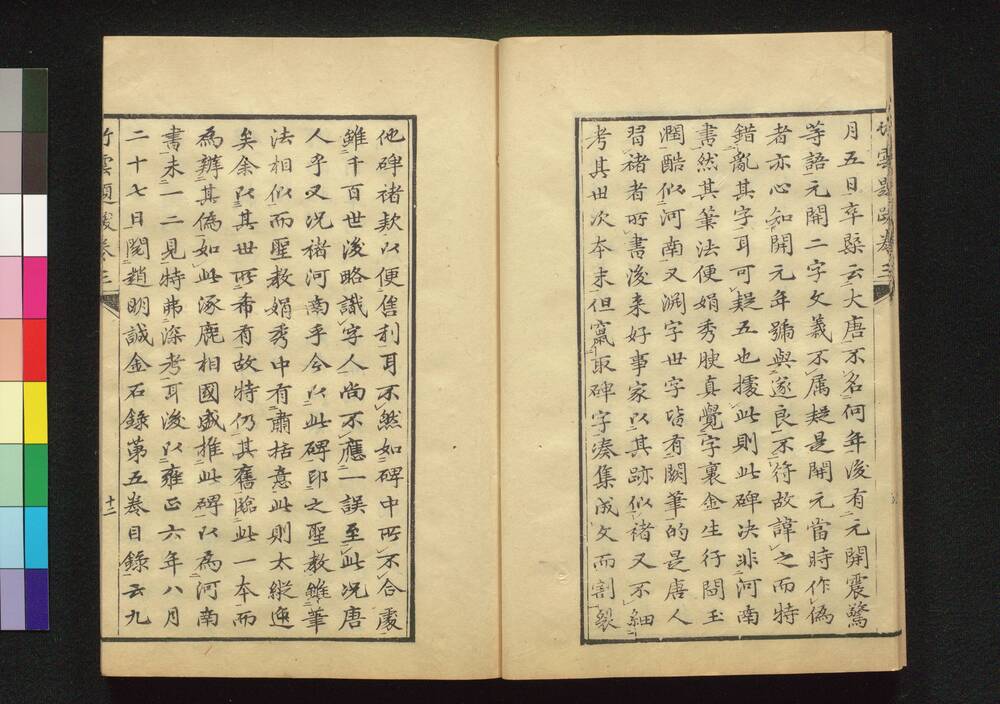 竹雲題跋卷三
月五日卒槩云大唐不名何年後有元開震驚
等語元開二字文義不属疑是開元當時作偽
者亦心知開元年號與遂良不符故諱之而特
錯亂其字耳可疑五也據此則此碑决非河南
書然其筆法便娟秀腴真覺字裏金生行間玉
潤酷似河南又渊字世字皆有闕筆的是唐人
習禇者所書後来好事家以其跡似禇又不細
考其世次本末但竄取碑字湊集成文而割裂
他碑禇款以便售利耳不然如碑中所不合處
雖千百世後略識字人尚不應一誤至此况唐
人乎又况禇河南乎今以此碑印之聖教雖筆
法相似而聖教娟秀中有肅括意此則太縱逸
矣余以其世所希有故特仍其舊臨此一本而
為辨其偽如此涿鹿相國盛推此碑以為河南
書未一二見特弗深考耳後以雍正六年八月
二十七日閱趙明誠金石錄第五卷目錄云九
竹雲題跋卷三
十二